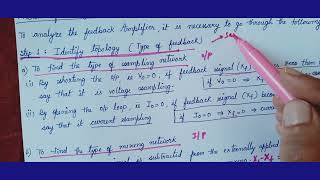 To analyze the feedback Amplifier, it is necessary to go through the following
Step 1: Identify topology (Type of feedback)
O/P
a) To find the type of sampling network
(i) By shorting the o/p ie V₀=0, if feedback signal (Xf) becomes zero then
say that it is voltage sampling. If V₀ = 0 → Xf
(ii) By opening the o/p loop, ie I₀=0, if feedback signal (Xf) beco
say that it current sampling I₀=0 → (Xf=0) → curre
I/P
b) To find the type of mixing network
is subtracted from the externally applied